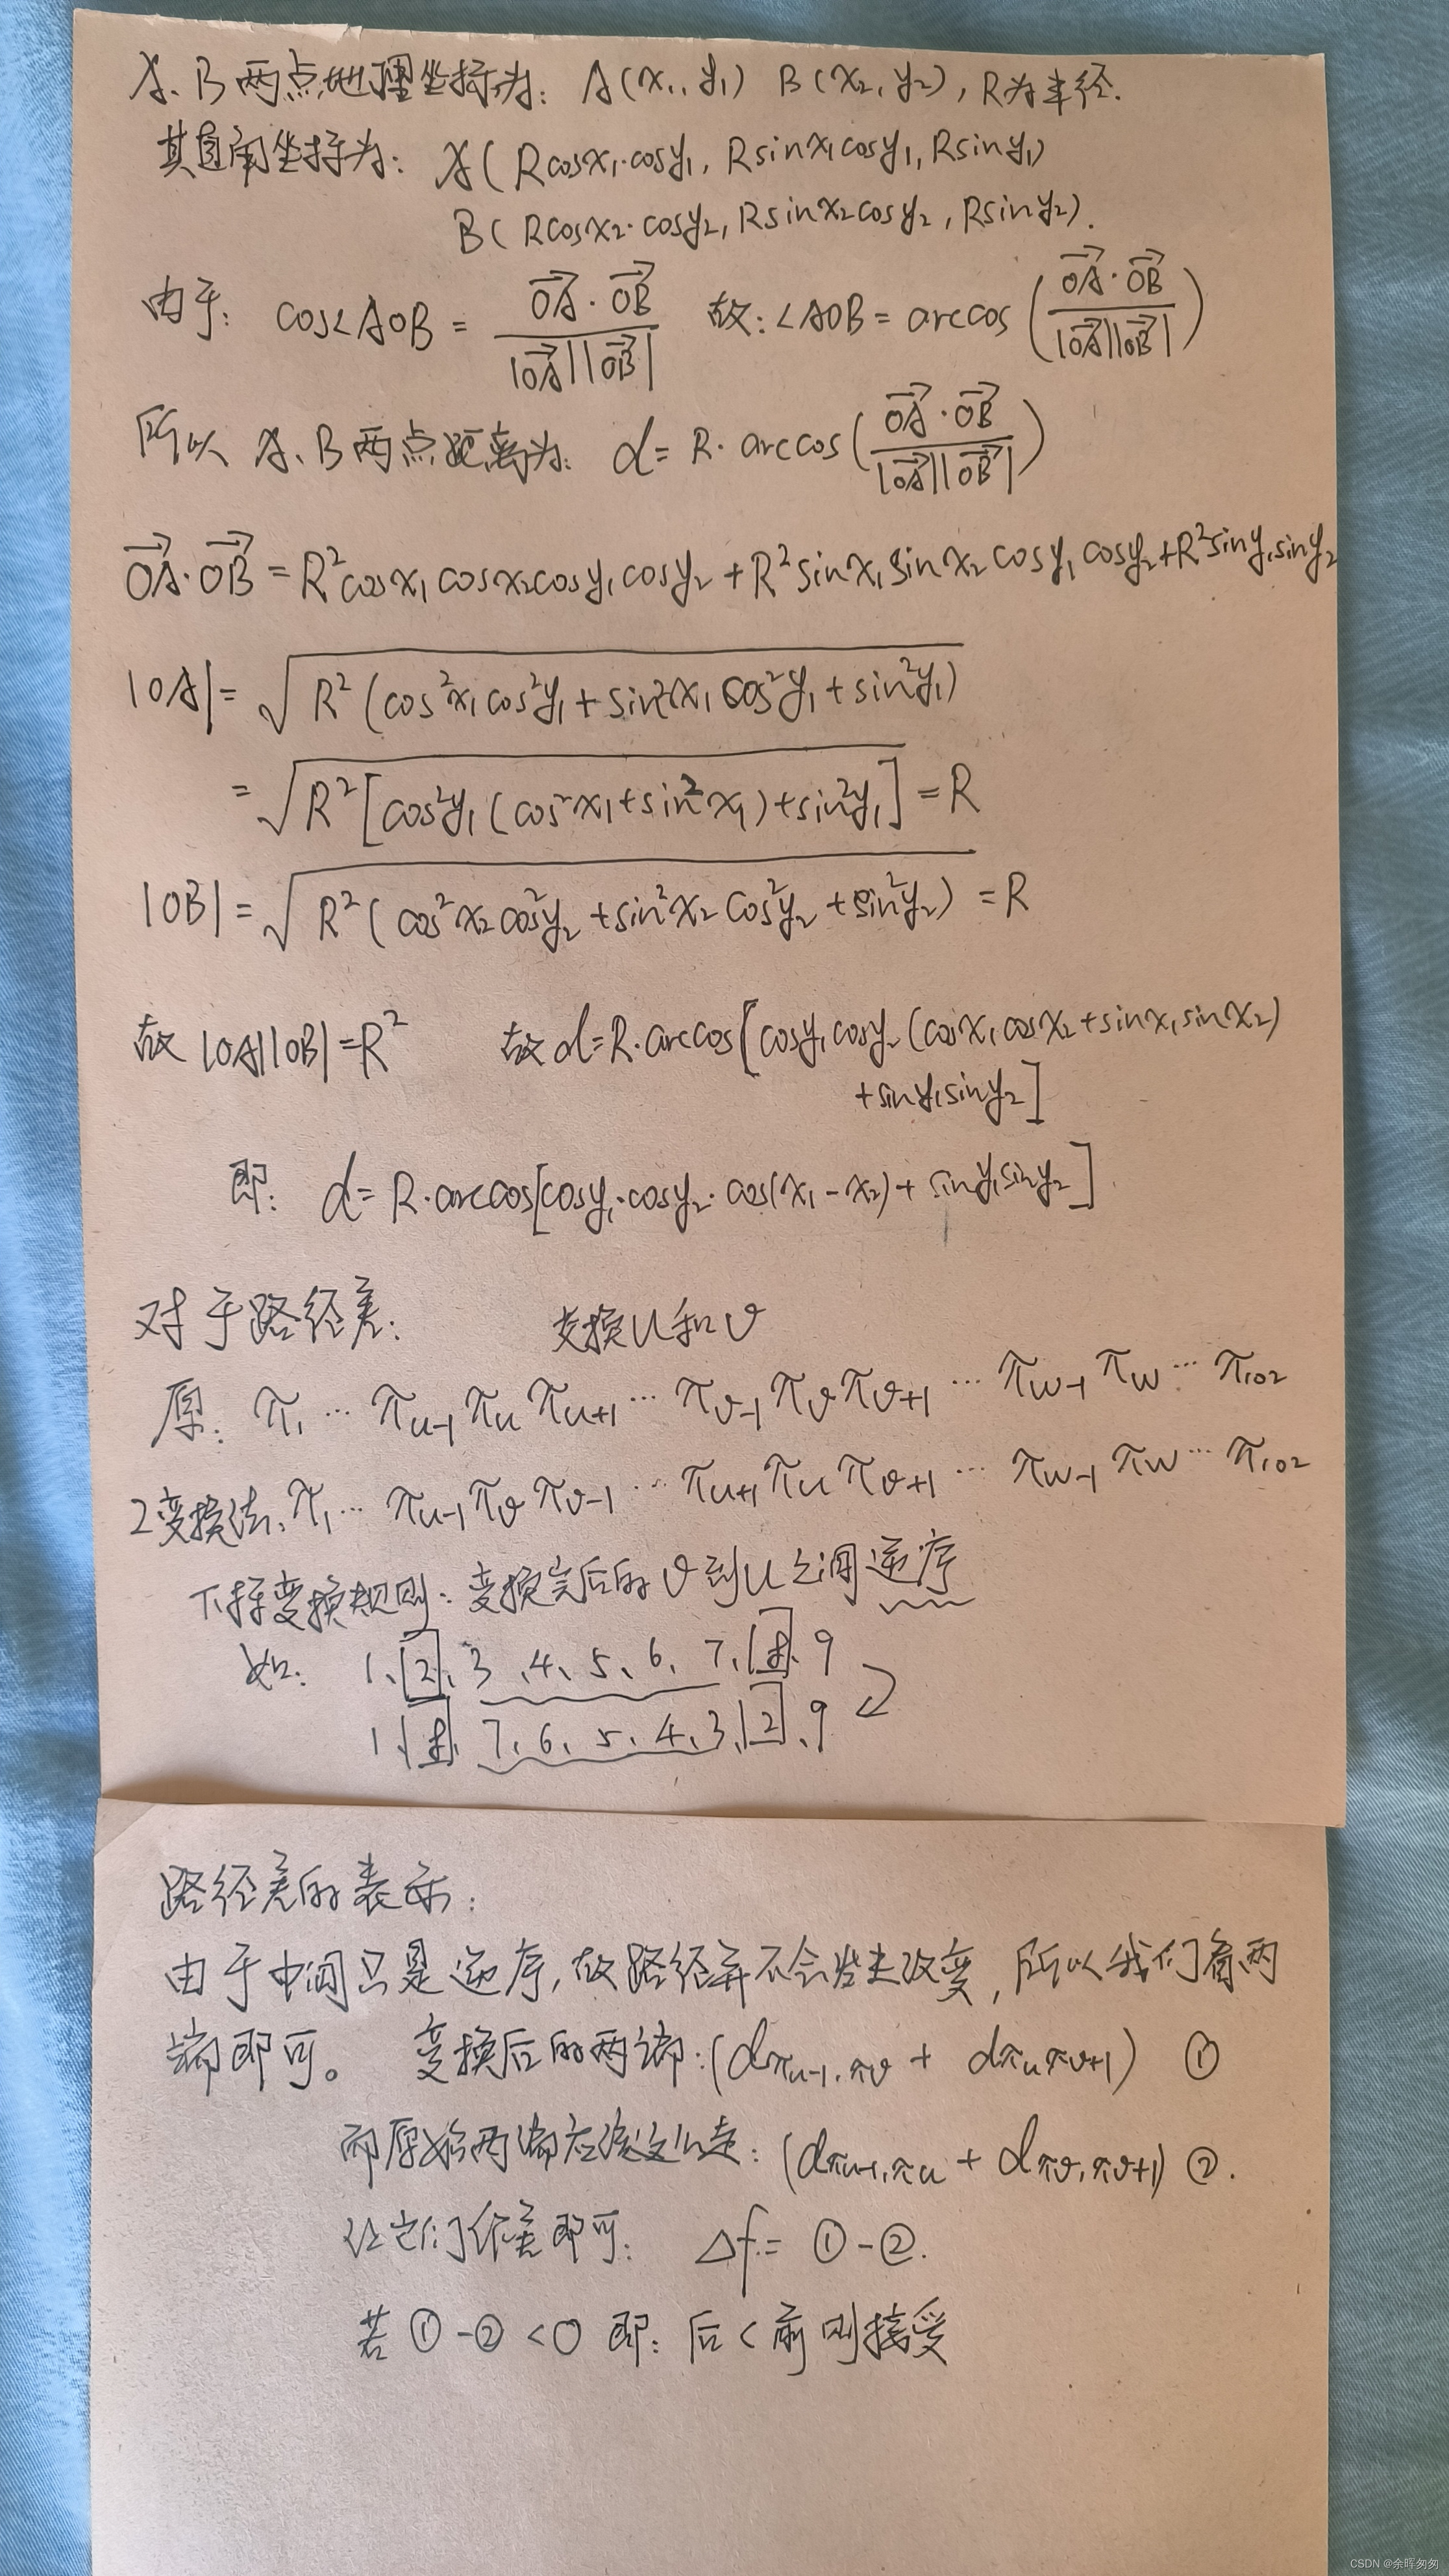 A、B两点地理坐标为: A(x₁, y₁) B(x₂, y₂), R为半径.
其直角坐标为: A(Rcosx₁·cosy₁, Rsinx₁cosy₁, Rsiny₁)
B(Rcosx₂·cosy₂, Rsinx₂cosy₂, Rsiny₂).
由于: cos∠AOB = (→OA·→OB)/(|→OA||→OB|) 故: ∠AOB = arccos((→OA·→OB)/(|→OA||→OB|))
所以 A、B两点距离为: d = R·arccos((→OA·→OB)/(|→OA||→OB|))
→OA·→OB = R²cosx₁cosx₂cosy₁cosy₂ + R²sinx₁sinx₂cosy₁cosy₂ + R²siny₁siny₂
|OA| = √(R²(cos²x₁cos²y₁ + sin²x₁cos²y₁ + sin²y₁))
= √(R²[cos²y₁(cos²x₁+sin²x₁)+sin²y₁]) = R
|OB| = √(R²(cos²x₂cos²y₂ + sin²x₂cos²y₂ + sin²y₂)) = R
故 |OA||OB| = R² 故 d = R·arccos[cosy₁cosy₂(cosx₁cosx₂+sinx₁sinx₂)
+siny₁siny₂]
即: d = R·arccos[cosy₁·cosy₂·cos(x₁-x₂)+siny₁siny₂]
对于路径差: 变换u和v
原: π₁ … πu-1 πu πu+1 … πv-1 πv πv+1 … πw-1 πw … π102
2变换法: π₁ … πu-1 πv πv-1 … πu+1 πu πv+1 … πw-1 πw … π102
变换规则: 变换完后的v到u之间逆序
如: 1、2、3、4、5、6、7、8、9
1、8、7、6、5、4、3、2、9
路径差的表示:
由于中间只是逆序,故路径并不会发生改变,所以我们看两
端即可。 变换后的两端:(dπu-1,πv + dπuπv+1) ①
而原始两端应该这么走: (dπu-1,πu + dπv,πv+1) ②.
让它们作差即可: Δf = ①-②.
若①-②<0 即: 后<前 则接受
CSDN @余晖匆匆